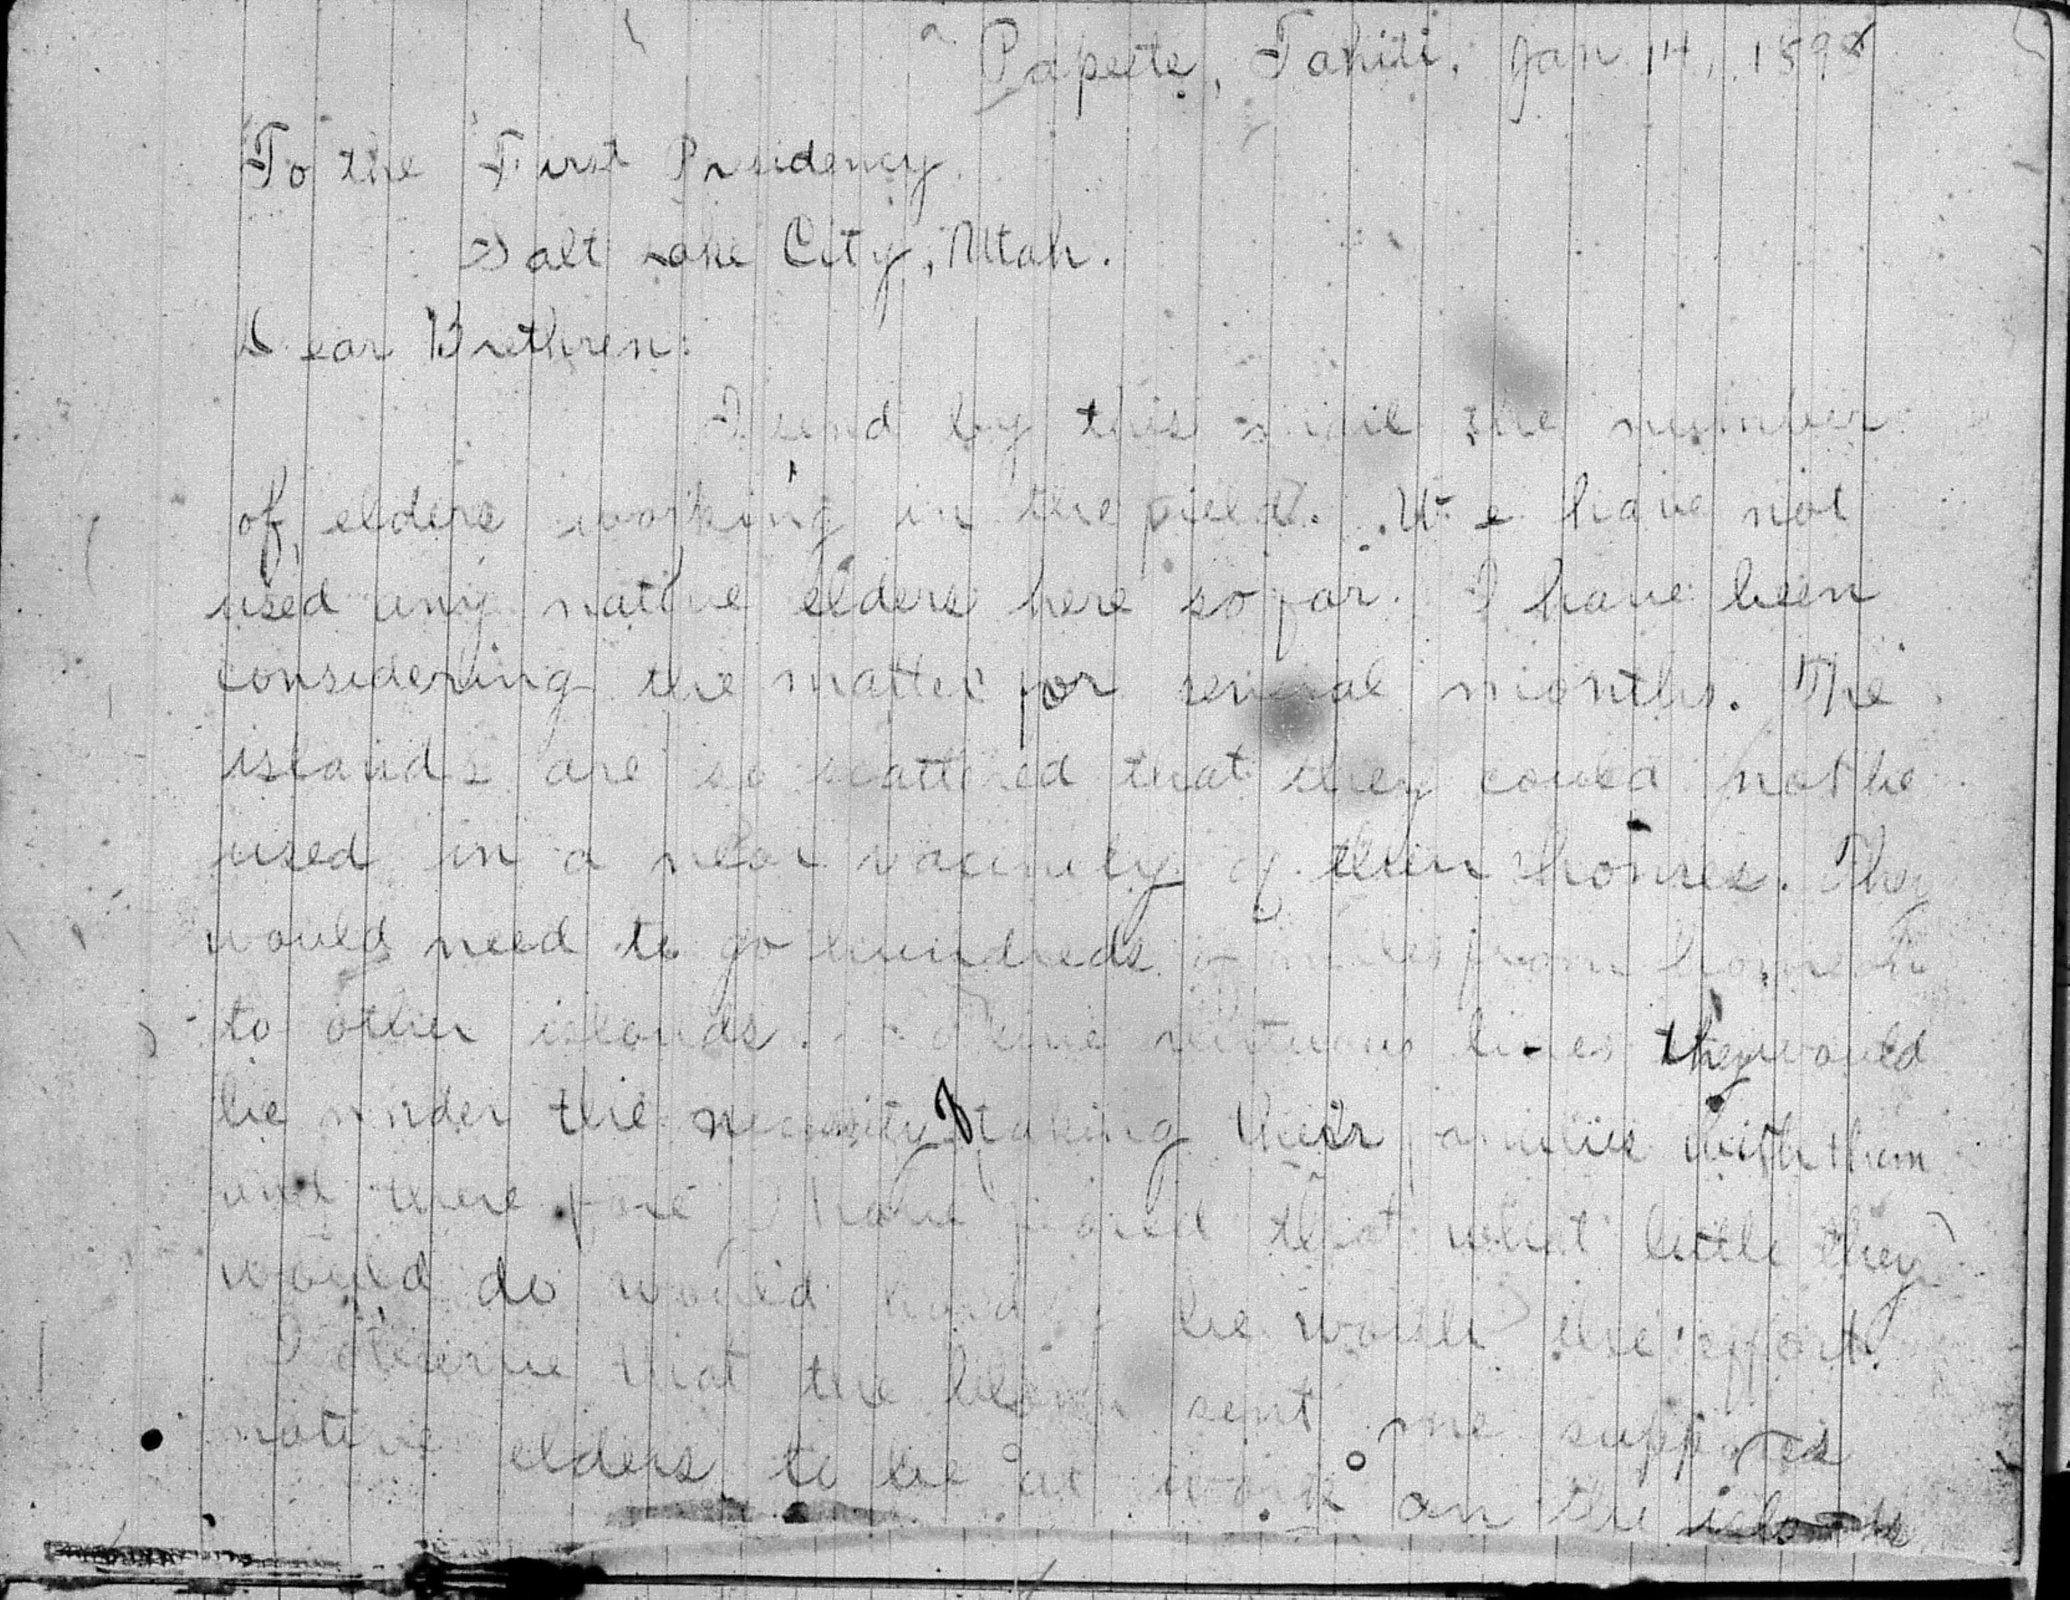 Papeete, Tahiti, Jan 14, 1898
To the First Presidency
Salt Lake City, Utah.
Dear Brethren:
I send by this mail the number
of elders working in the field. We have not
used any native elders here so far. I have been
considering the matter for several months. The
islands are so scattered that they could not be
used in a near vacinity of their homes. They
would need to go hundreds of miles from home
to other islands. live virtuous lives they would
be under the necessity of taking their families with them
and there fore I have that what little they
would do would hardly be worth the effort.
I observe that the blank sent me supposes
native elders to be at work on the islands